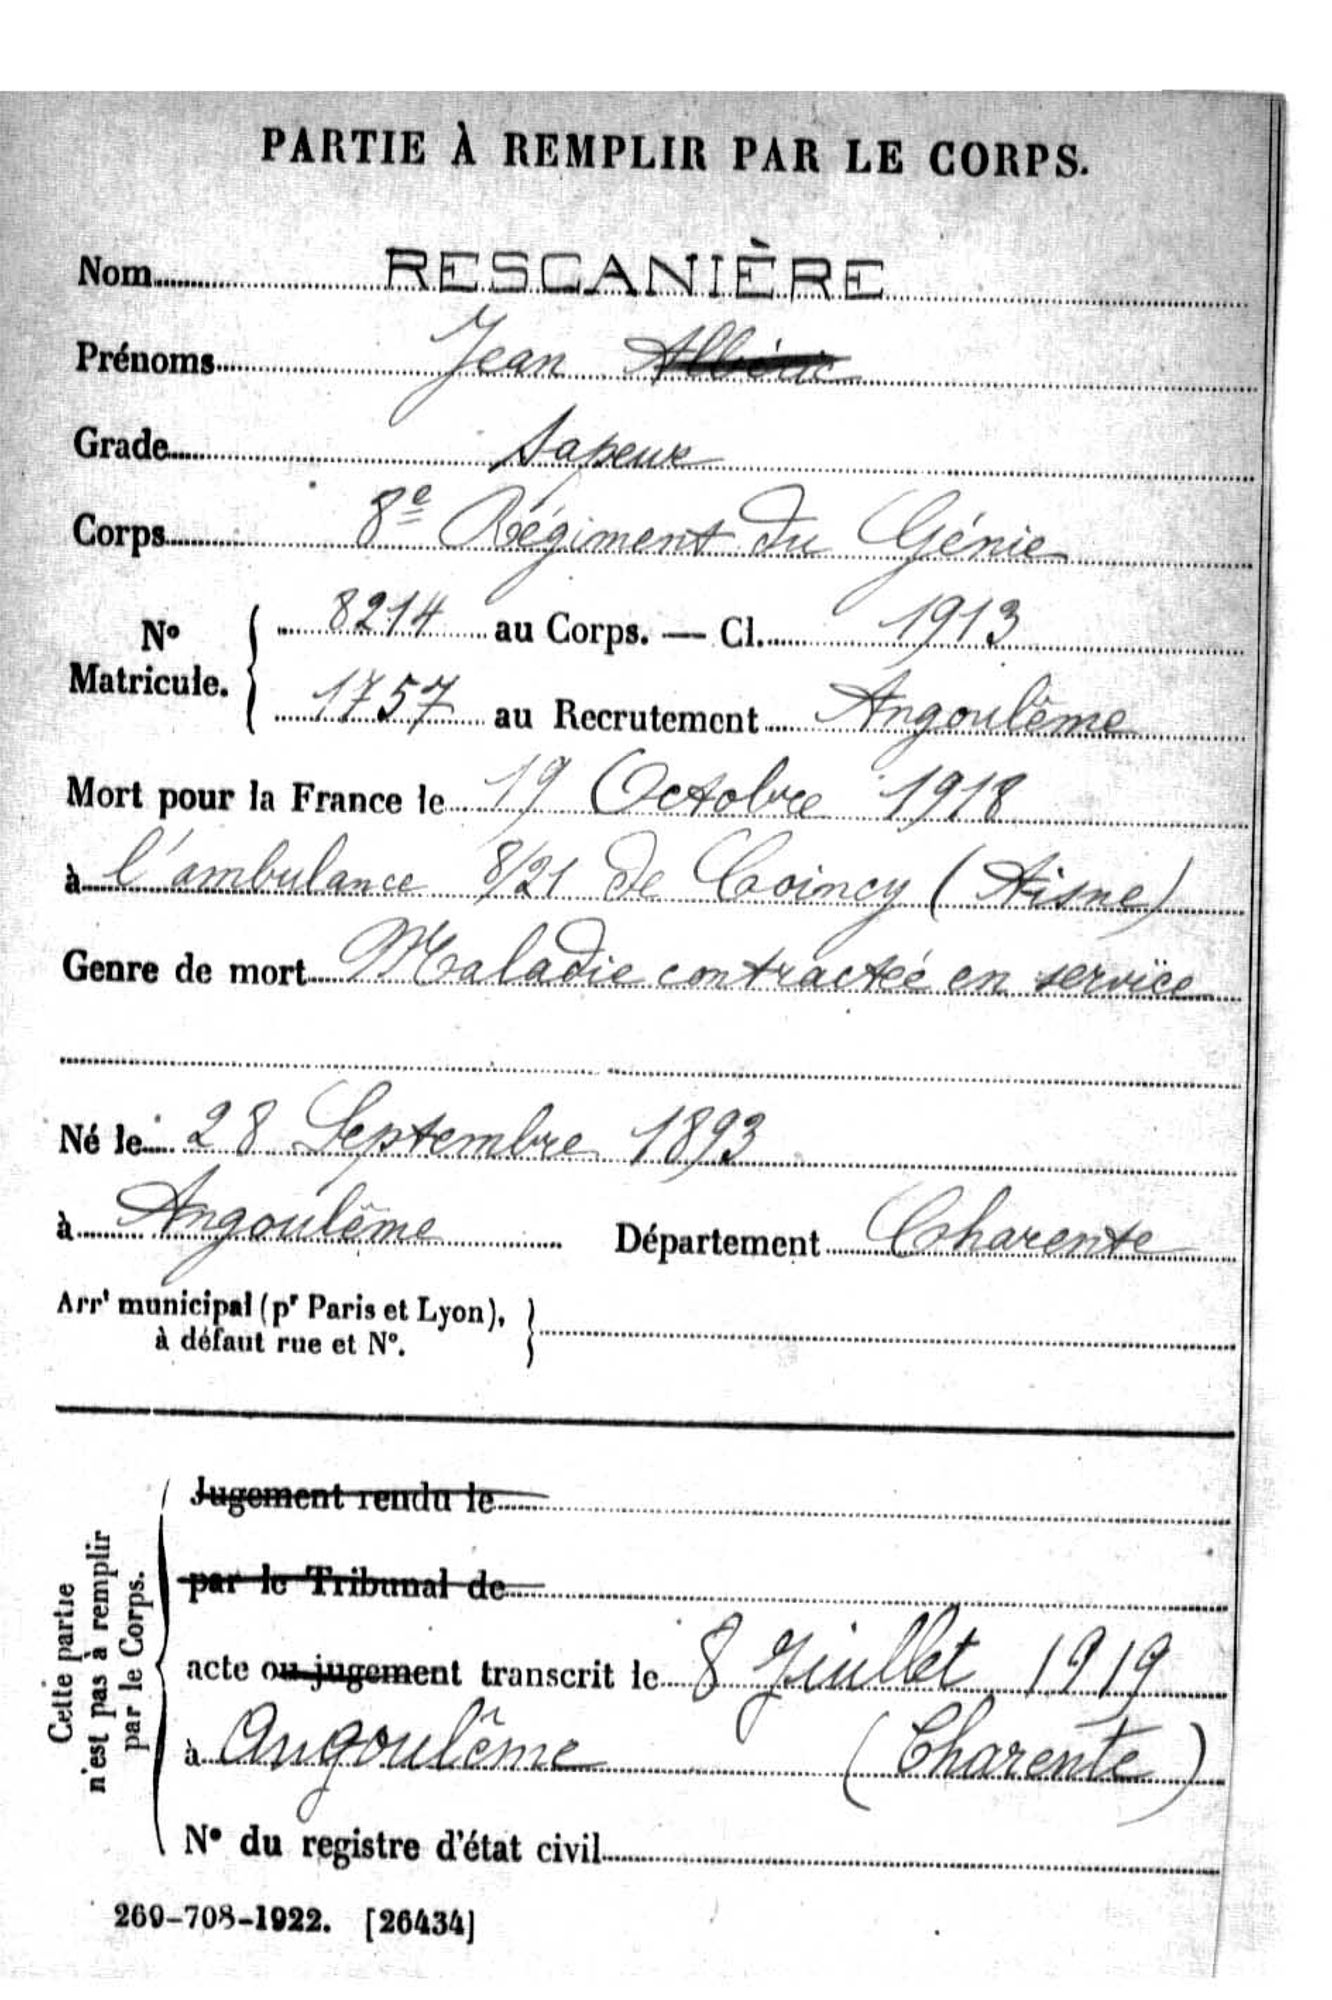 PARTIE À REMPLIR PAR LE CORPS.
Nom RESCANIÈRE
Prénoms Jean Albéric
Grade Sapeur
Corps 8e Régiment du Génie
No Matricule. { 8214 au Corps. — Cl. 1913
1757 au Recrutement Angoulême
Mort pour la France le 19 Octobre 1918
à l'ambulance 8/21 de Coincy (Aisne)
Genre de mort Maladie contractée en service
Né le 28 Septembre 1893
à Angoulême Département Charente
Arrt municipal (pr Paris et Lyon),
à défaut rue et No.
Cette partie
n'est pas à remplir
par le Corps.
Jugement rendu le
par le Tribunal de
acte ou jugement transcrit le 8 Juillet 1919
à Angoulême (Charente)
No du registre d'état civil
269-708-1922. [26434]